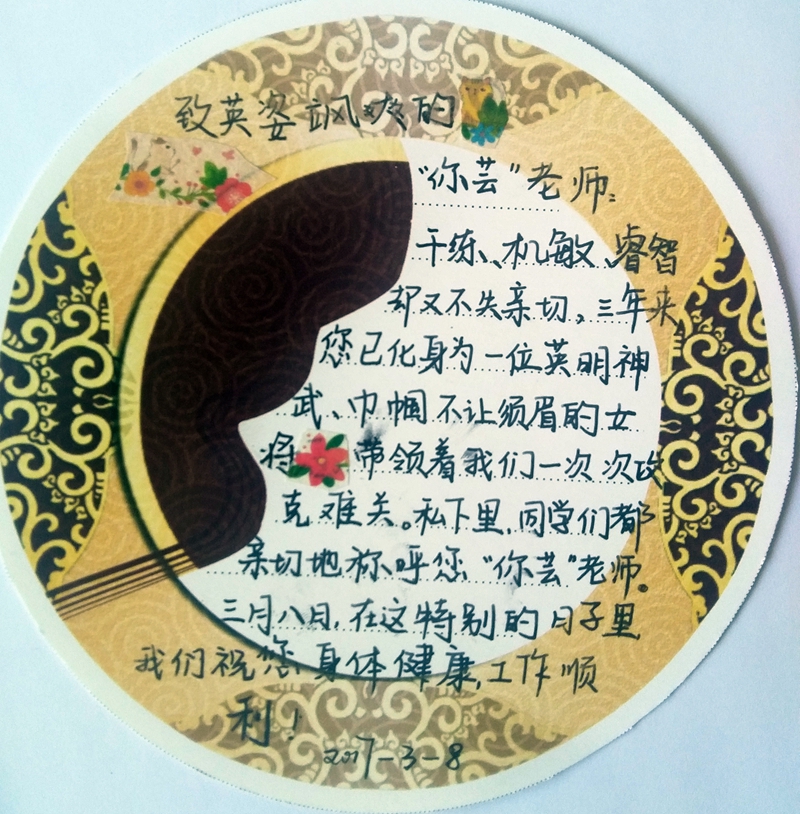 致英姿飒爽的
“你芸”老师:
干练、机敏、睿智
却又不失亲切。三年来,
您已化身为一位英明神
武、巾帼不让须眉的女
将 带领着我们一次次攻
克难关。私下里,同学们都
亲切地称呼您“你芸”老师。
三月八日,在这特别的日子里
我们祝您身体健康,工作顺
利!
2017-3-8